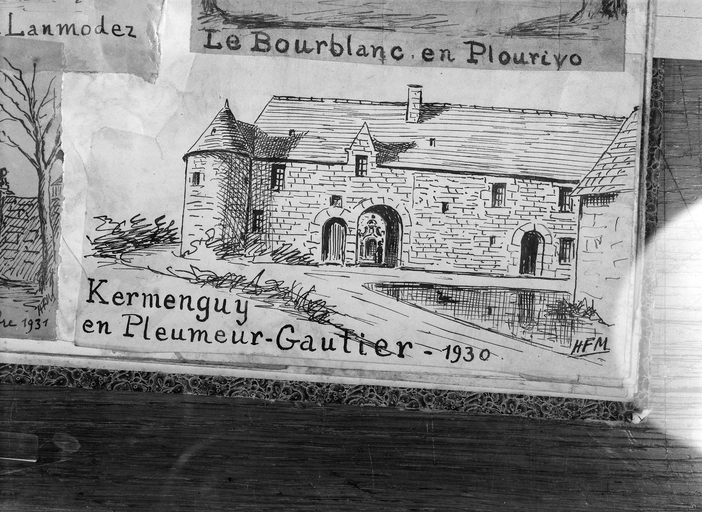 Lanmodez
Le Bourblanc. en Plourivo
1931
Kermenguy
en Pleumeur-Gautier - 1930
HFM